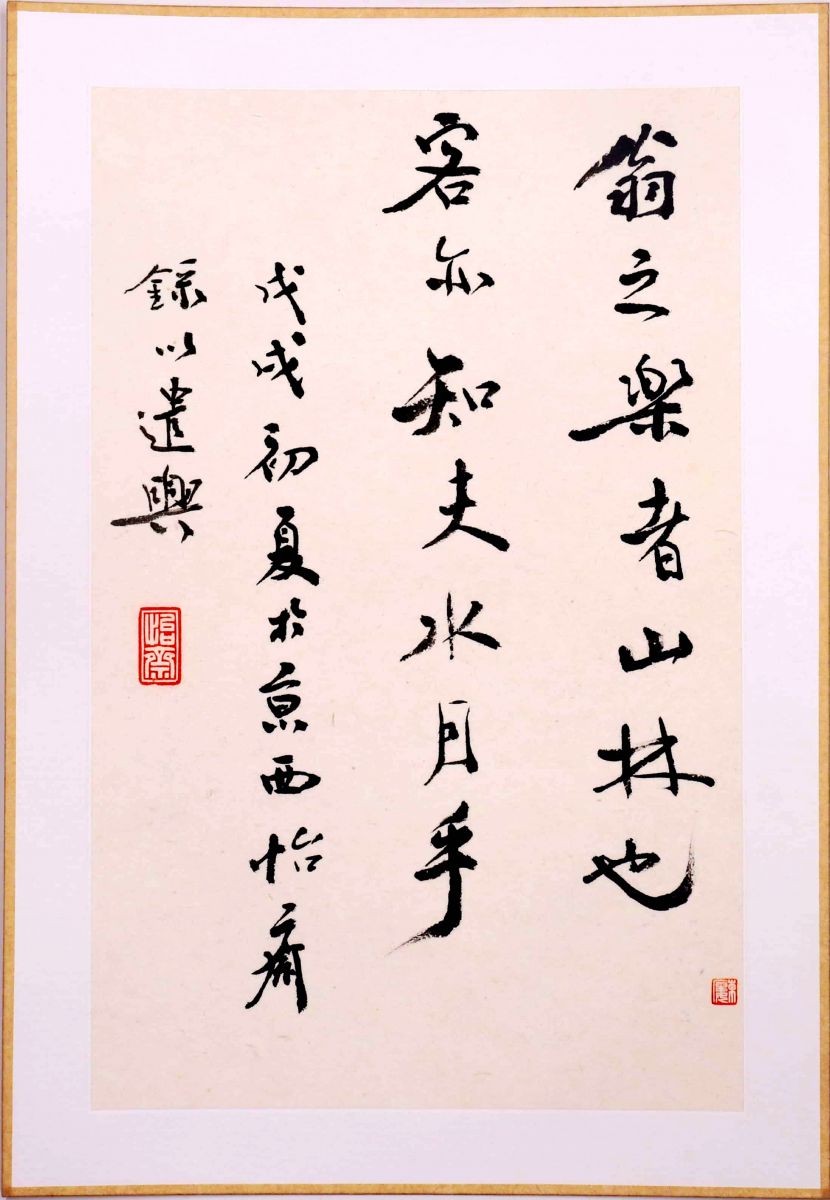 翁之樂者山林也
客亦知夫水月乎
戊戌初夏於京西怡齋
錄以遣興
怡齋